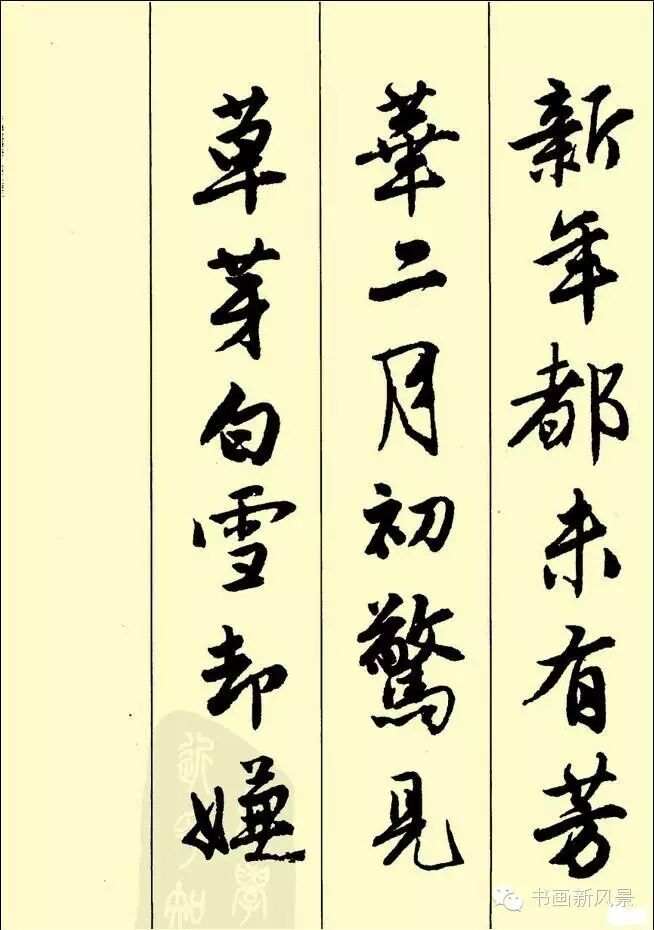 新年都未有芳
華二月初驚見
草芽白雪却嫌
书画新风景